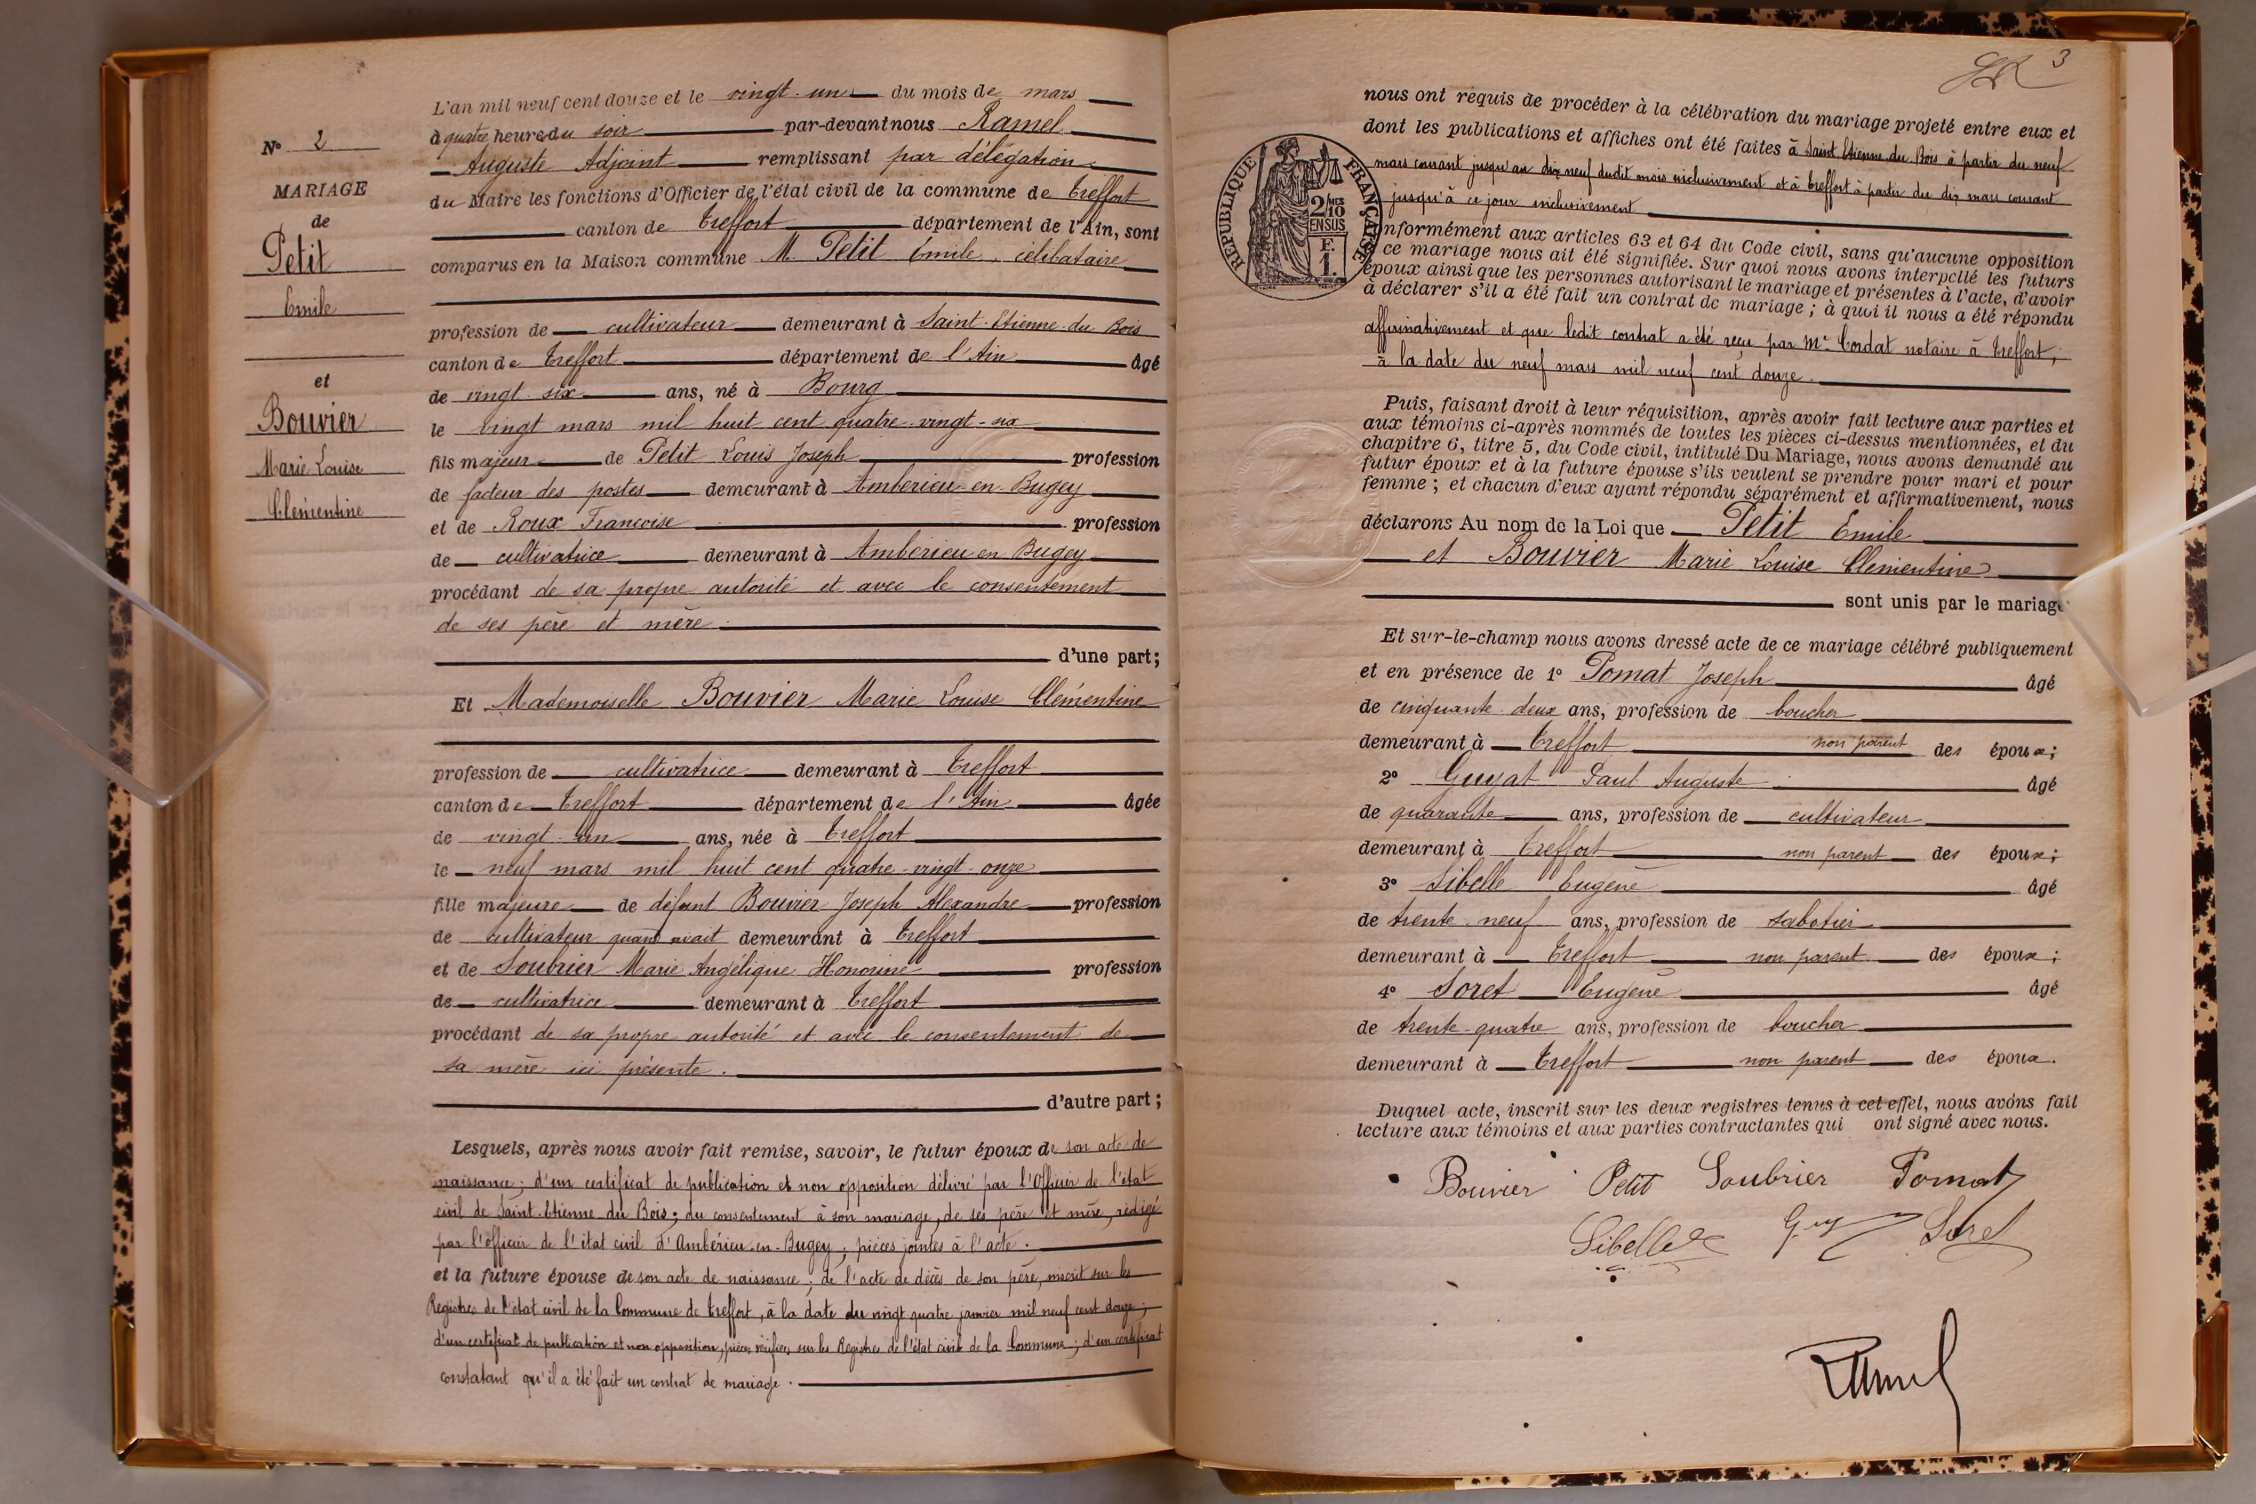 N° 2
MARIAGE
de
Petit
Emile
et
Bouvier
Marie Louise
Clémentine
L'an mil neuf cent douze et le vingt-un du mois de mars
à quatre heures du soir par-devant nous Ramel
Auguste Adjoint remplissant par délégation
du Maire les fonctions d'Officier de l'état civil de la commune de Treffort
canton de Treffort département de l'Ain, sont
comparus en la Maison commune M. Petit Emile, célibataire
profession de cultivateur demeurant à Saint-Etienne-du Bois
canton de Treffort département de l'Ain âgé
de vingt-six ans, né à Bourg
le vingt mars mil huit cent quatre-vingt-six
fils majeur de Petit Louis Joseph profession
de facteur des postes demeurant à Ambérieu-en-Bugey
et de Roux Françoise profession
de cultivatrice demeurant à Ambérieu en Bugey
procédant de sa propre autorité et avec le consentement
de ses père et mère.
d'une part;
Et Mademoiselle Bouvier Marie Louise Clémentine
profession de cultivatrice demeurant à Treffort
canton de Treffort département de l'Ain âgée
de vingt-un ans, née à Treffort
le neuf mars mil huit cent quatre-vingt-onze
fille majeure de défunt Bouvier Joseph Alexandre profession
de cultivateur quand vivait demeurant à Treffort
et de Soubrier Marie Angélique Honorine profession
de cultivatrice demeurant à Treffort
procédant de sa propre autorité et avec le consentement de
sa mère ici présente.
d'autre part;
Lesquels, après nous avoir fait remise, savoir, le futur époux de son acte de
naissance; d'un certificat de publication et non opposition délivré par l'Officier de l'état
civil de Saint-Etienne-du Bois; du consentement à son mariage, de ses père et mère, rédigé
par l'officier de l'état civil d'Ambérieu-en-Bugey; pièces jointes à l'acte.
et la future épouse de son acte de naissance; de l'acte de décès de son père, inscrit sur les
Registres de l'état civil de la Commune de Treffort, à la date du vingt quatre janvier mil neuf cent douze;
d'un certificat de publication et non opposition, pièces vérifiées sur les Registres de l'état civil de la Commune; d'un certificat
constatant qu'il a été fait un contrat de mariage.
3
nous ont requis de procéder à la célébration du mariage projeté entre eux et
dont les publications et affiches ont été faites à Saint Etienne du Bois à partir du neuf
mars courant jusqu'au dix neuf dudit mois inclusivement et à Treffort à partir du dix mars courant
jusqu'à ce jour inclusivement
RÉPUBLIQUE FRANÇAISE
2/10
EN SUS
F.
1.
nformément aux articles 63 et 64 du Code civil, sans qu'aucune opposition
ce mariage nous ait été signifiée. Sur quoi nous avons interpellé les futurs
époux ainsi que les personnes autorisant le mariage et présentes à l'acte, d'avoir
à déclarer s'il a été fait un contrat de mariage; à quoi il nous a été répondu
affirmativement et que ledit contrat a été reçu par Me Cordat notaire à Treffort,
à la date du neuf mars mil neuf cent douze.
Puis, faisant droit à leur réquisition, après avoir fait lecture aux parties et
aux témoins ci-après nommés de toutes les pièces ci-dessus mentionnées, et du
chapitre 6, titre 5, du Code civil, intitulé Du Mariage, nous avons demandé au
futur époux et à la future épouse s'ils veulent se prendre pour mari et pour
femme; et chacun d'eux ayant répondu séparément et affirmativement, nous
déclarons Au nom de la Loi que Petit Emile
et Bouvier Marie Louise Clémentine
sont unis par le mariage
Et sur-le-champ nous avons dressé acte de ce mariage célébré publiquement
et en présence de 1° Pomat Joseph âgé
de cinquante-deux ans, profession de boucher
demeurant à Treffort non parent des époux;
2° Guyat Paul Auguste âgé
de quarante ans, profession de cultivateur
demeurant à Treffort non parent des époux;
3° Sibelle Eugène âgé
de trente-neuf ans, profession de sabotier
demeurant à Treffort non parent des époux;
4° Soret Eugène âgé
de trente-quatre ans, profession de boucher
demeurant à Treffort non parent des époux.
Duquel acte, inscrit sur les deux registres tenus à cet effet, nous avons fait
lecture aux témoins et aux parties contractantes qui ont signé avec nous.
Bouvier Petit Soubrier Pomat
Sibelle Soret
Ramel